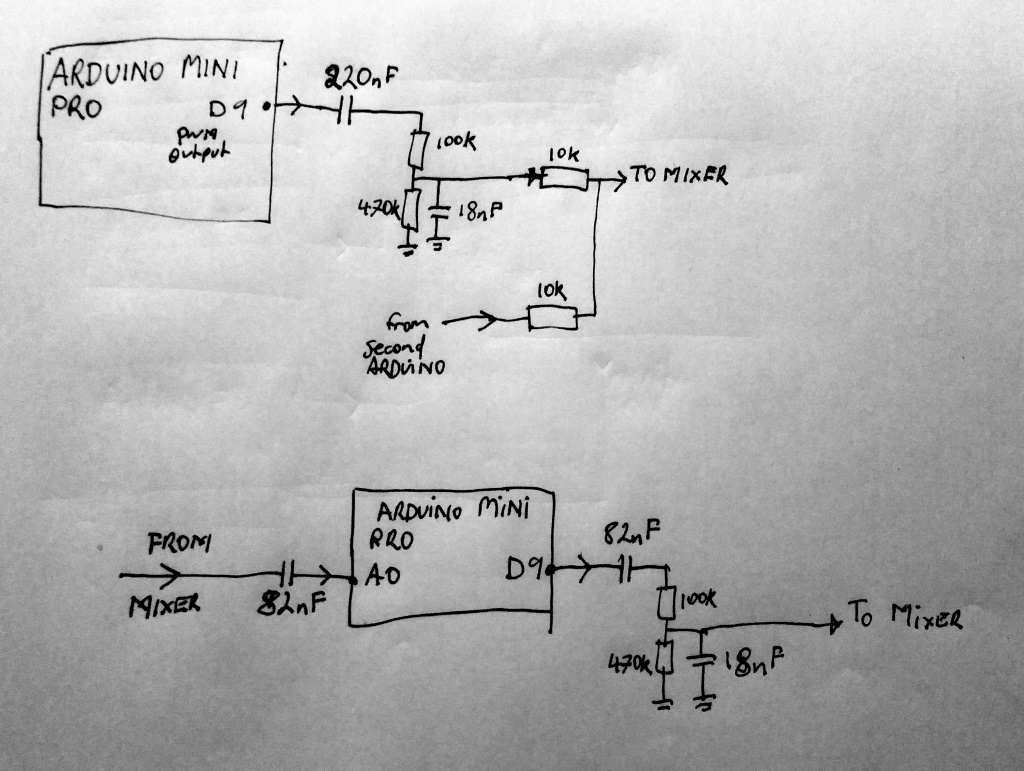 ARDUINO MINI
PRO
D9
PWM
Output
220nF
100k
10k
TO MIXER
470k
18nF
10k
from
second
ARDUINO
FROM
MIXER
82nF
ARDUINO MINI
PRO
A0
D9
82nF
100k
470k
18nF
To MIXER